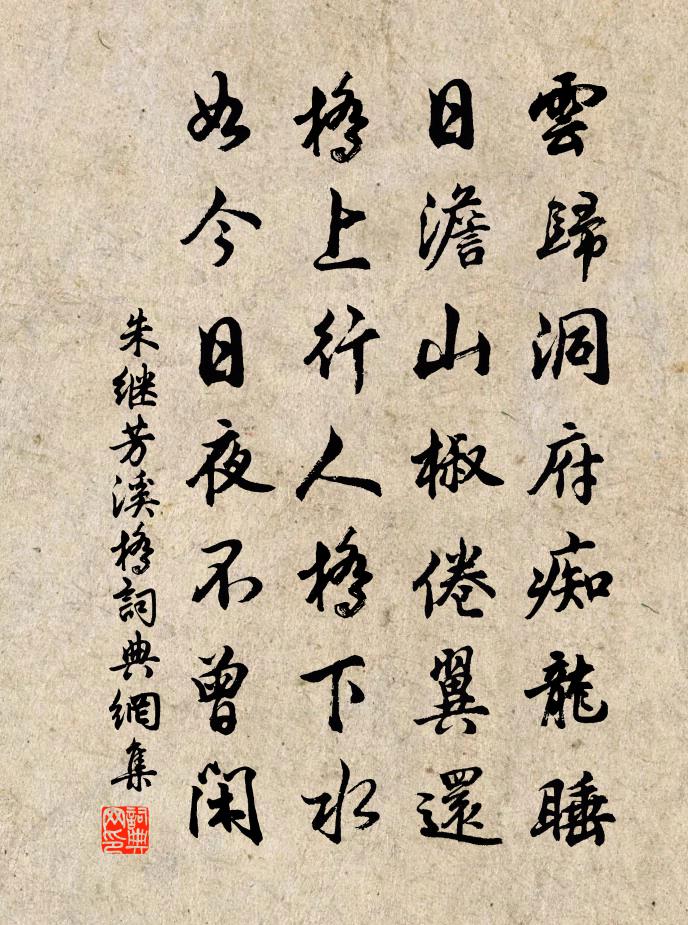 雲歸洞府痴龍睡
日澹山椒倦翼還
橋上行人橋下水
如今日夜不曾閑
朱继芳溪橋詞典網集
詞典網印